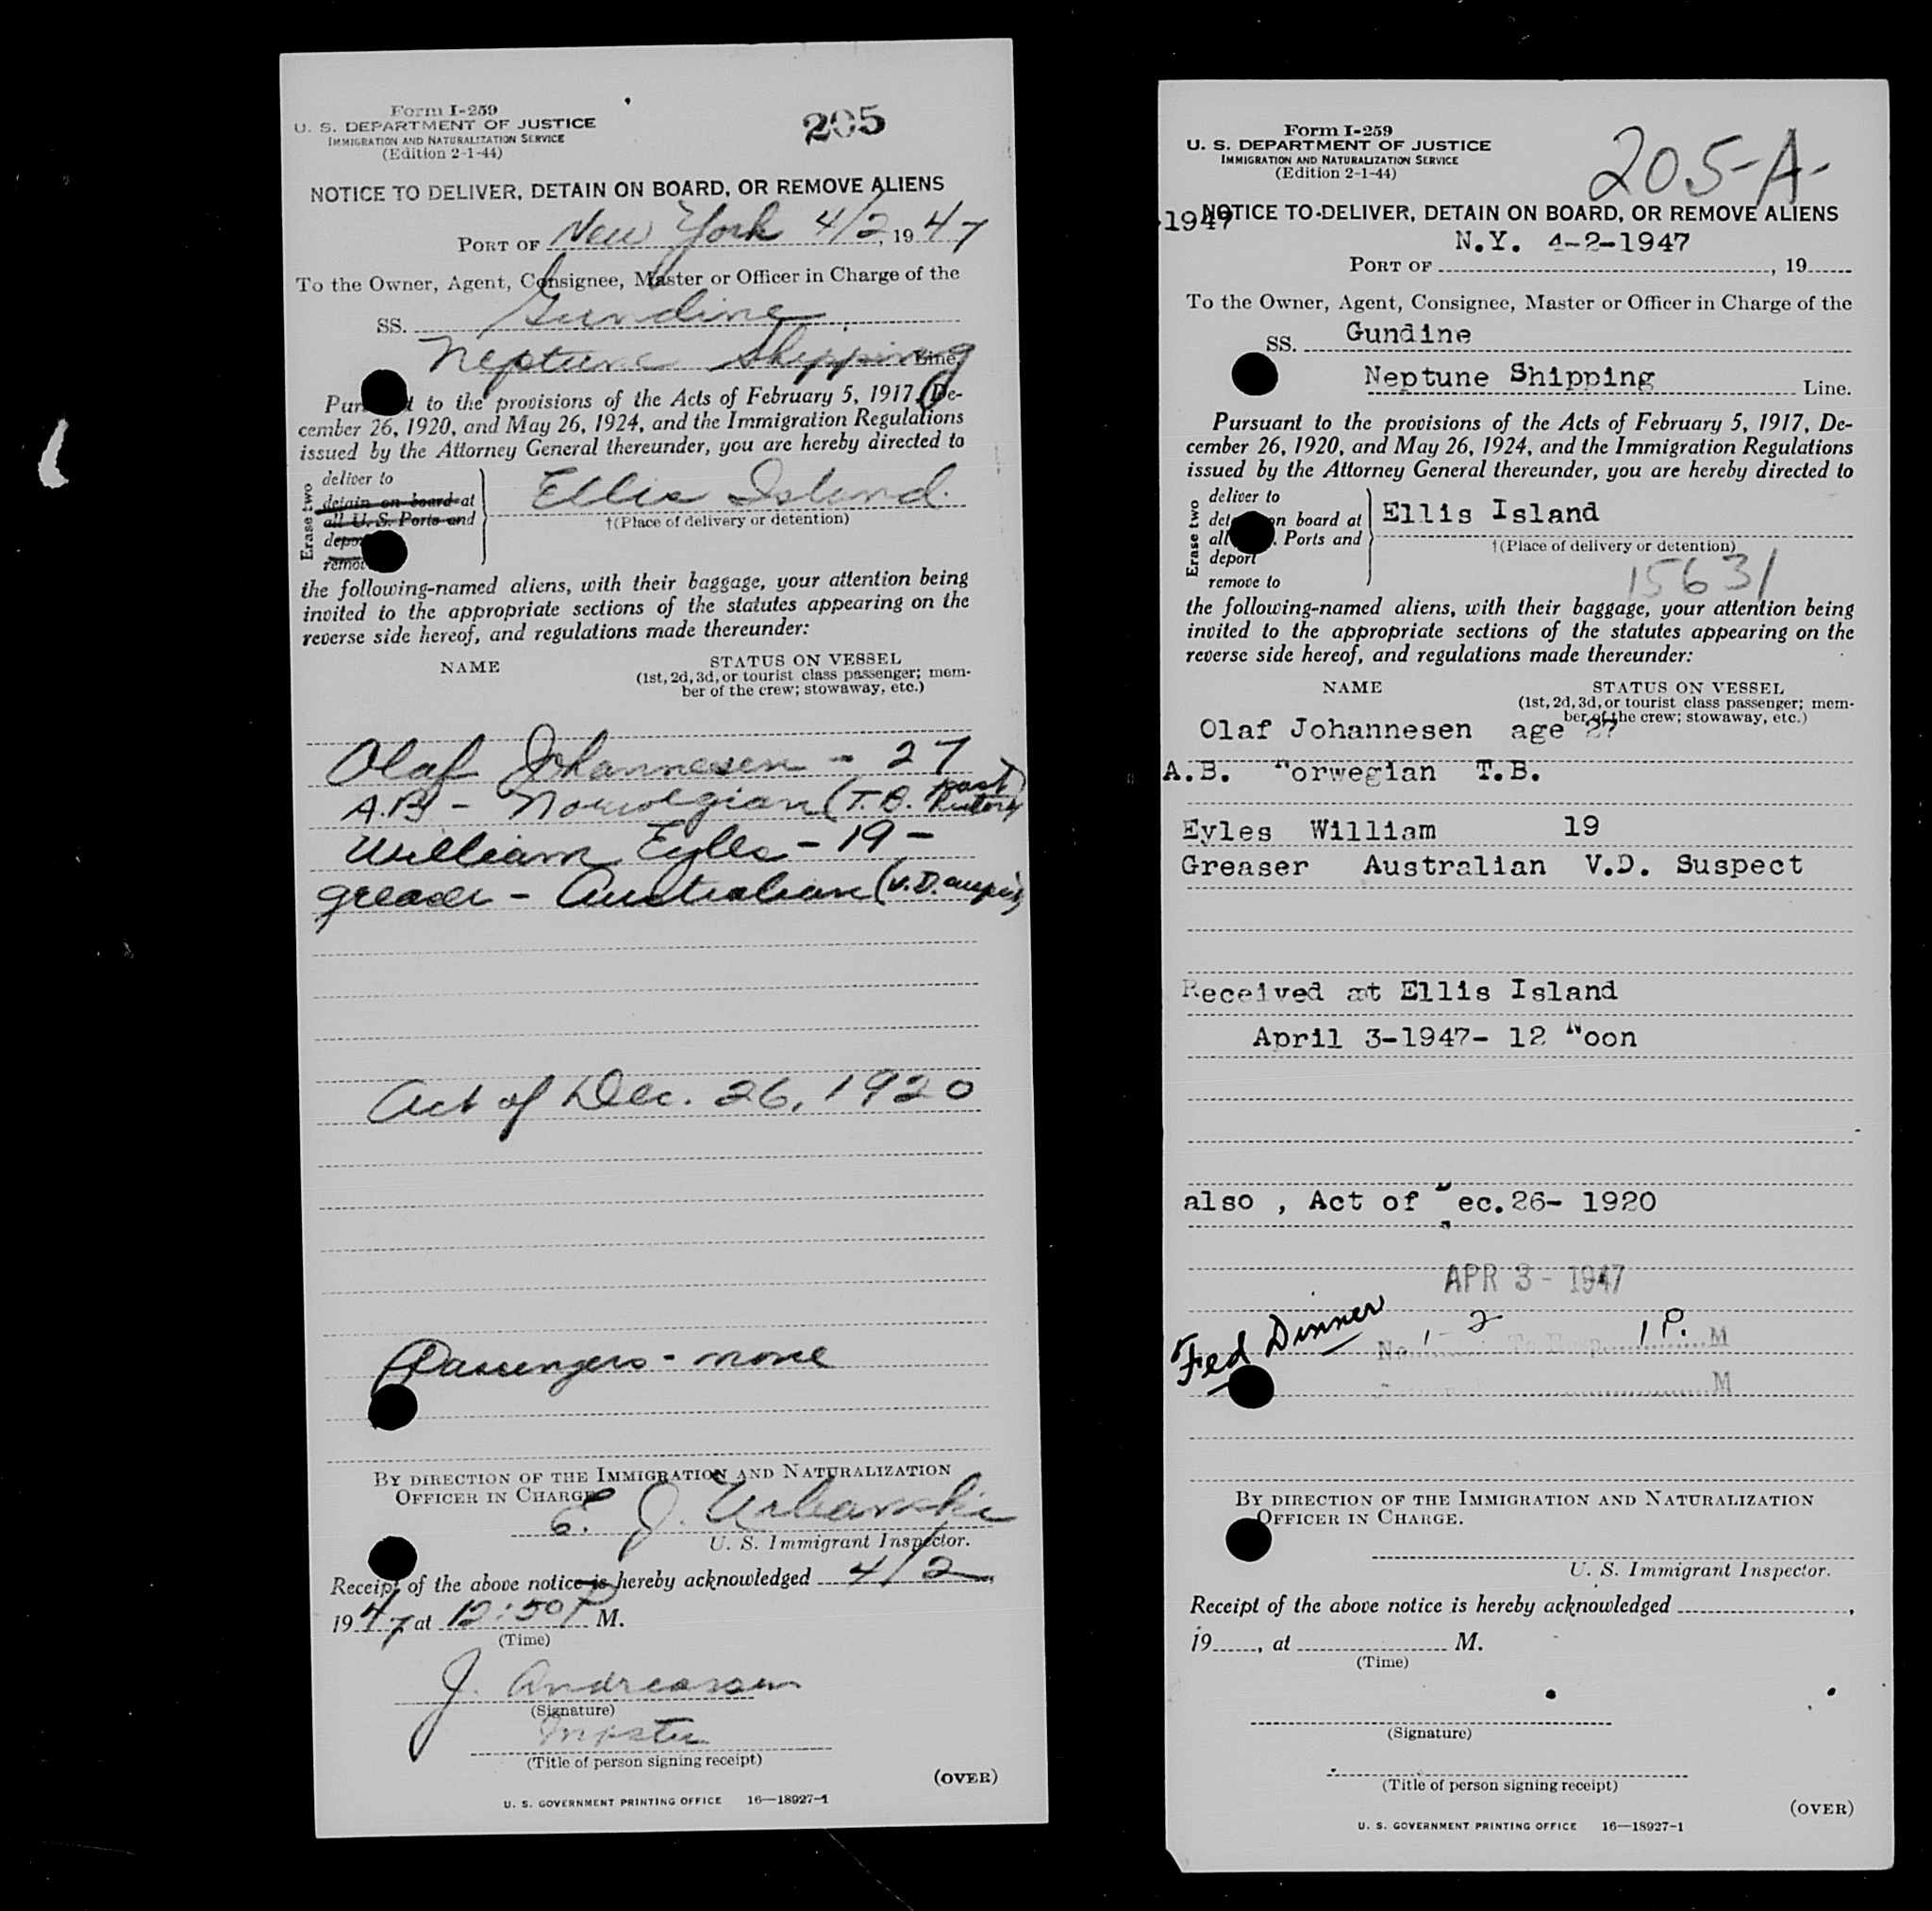 Form I-259
U. S. DEPARTMENT OF JUSTICE
IMMIGRATION AND NATURALIZATION SERVICE
(Edition 2-1-44)
205
NOTICE TO DELIVER, DETAIN ON BOARD, OR REMOVE ALIENS
PORT OF New York 4/2, 1947
To the Owner, Agent, Consignee, Master or Officer in Charge of the
SS. Gundine
Neptune Shipping Line.
to the provisions of the Acts of February 5, 1917, De-
cember 26, 1920, and May 26, 1924, and the Immigration Regulations
issued by the Attorney General thereunder, you are hereby directed to
Erase two
deliver to
detain on board at
all U. S. Ports and
Ellis Island.
†(Place of delivery or detention)
the following-named aliens, with their baggage, your attention being
invited to the appropriate sections of the statutes appearing on the
reverse side hereof, and regulations made thereunder:
NAME
STATUS ON VESSEL
(1st, 2d, 3d, or tourist class passenger; mem-
ber of the crew; stowaway, etc.)
Olaf Johannesen - 27
A.B - Norwegian (T.B. past history)
William Eyles - 19 -
greaser - Australian (V.D.
Act of Dec. 26, 1920
Passengers - none
BY DIRECTION OF THE IMMIGRATION AND NATURALIZATION
OFFICER IN CHARGE
E. J. Urbanski
U. S. Immigrant Inspector.
Receipt of the above notice is hereby acknowledged 4/2,
1947 at 12:50 P M.
(Time)
J. Andreassen
(Signature)
Master
(Title of person signing receipt)
(OVER)
U. S. GOVERNMENT PRINTING OFFICE 16—18927-1
Form I-259
U. S. DEPARTMENT OF JUSTICE
IMMIGRATION AND NATURALIZATION SERVICE
(Edition 2-1-44)
205-A-
-1947
NOTICE TO DELIVER, DETAIN ON BOARD, OR REMOVE ALIENS
N.Y. 4-2-1947
PORT OF , 19
To the Owner, Agent, Consignee, Master or Officer in Charge of the
SS. Gundine
Neptune Shipping Line.
Pursuant to the provisions of the Acts of February 5, 1917, De-
cember 26, 1920, and May 26, 1924, and the Immigration Regulations
issued by the Attorney General thereunder, you are hereby directed to
Erase two
deliver to
on board at
Ports and
deport
remove to
Ellis Island
†(Place of delivery or detention)
15631
the following-named aliens, with their baggage, your attention being
invited to the appropriate sections of the statutes appearing on the
reverse side hereof, and regulations made thereunder:
NAME
STATUS ON VESSEL
(1st, 2d, 3d, or tourist class passenger; mem-
ber of the crew; stowaway, etc.)
Olaf Johannesen age 27
A.B. Norwegian T.B.
Eyles William 19
Greaser Australian V.D. Suspect
Received at Ellis Island
April 3-1947- 12 Noon
also , Act of Dec.26- 1920
APR 3 - 1947
Fed Dinner
No. 1 2 1 P. M
M
BY DIRECTION OF THE IMMIGRATION AND NATURALIZATION
OFFICER IN CHARGE.
U. S. Immigrant Inspector.
Receipt of the above notice is hereby acknowledged ,
19 , at M.
(Time)
(Signature)
(Title of person signing receipt)
(OVER)
U. S. GOVERNMENT PRINTING OFFICE 16—18927-1